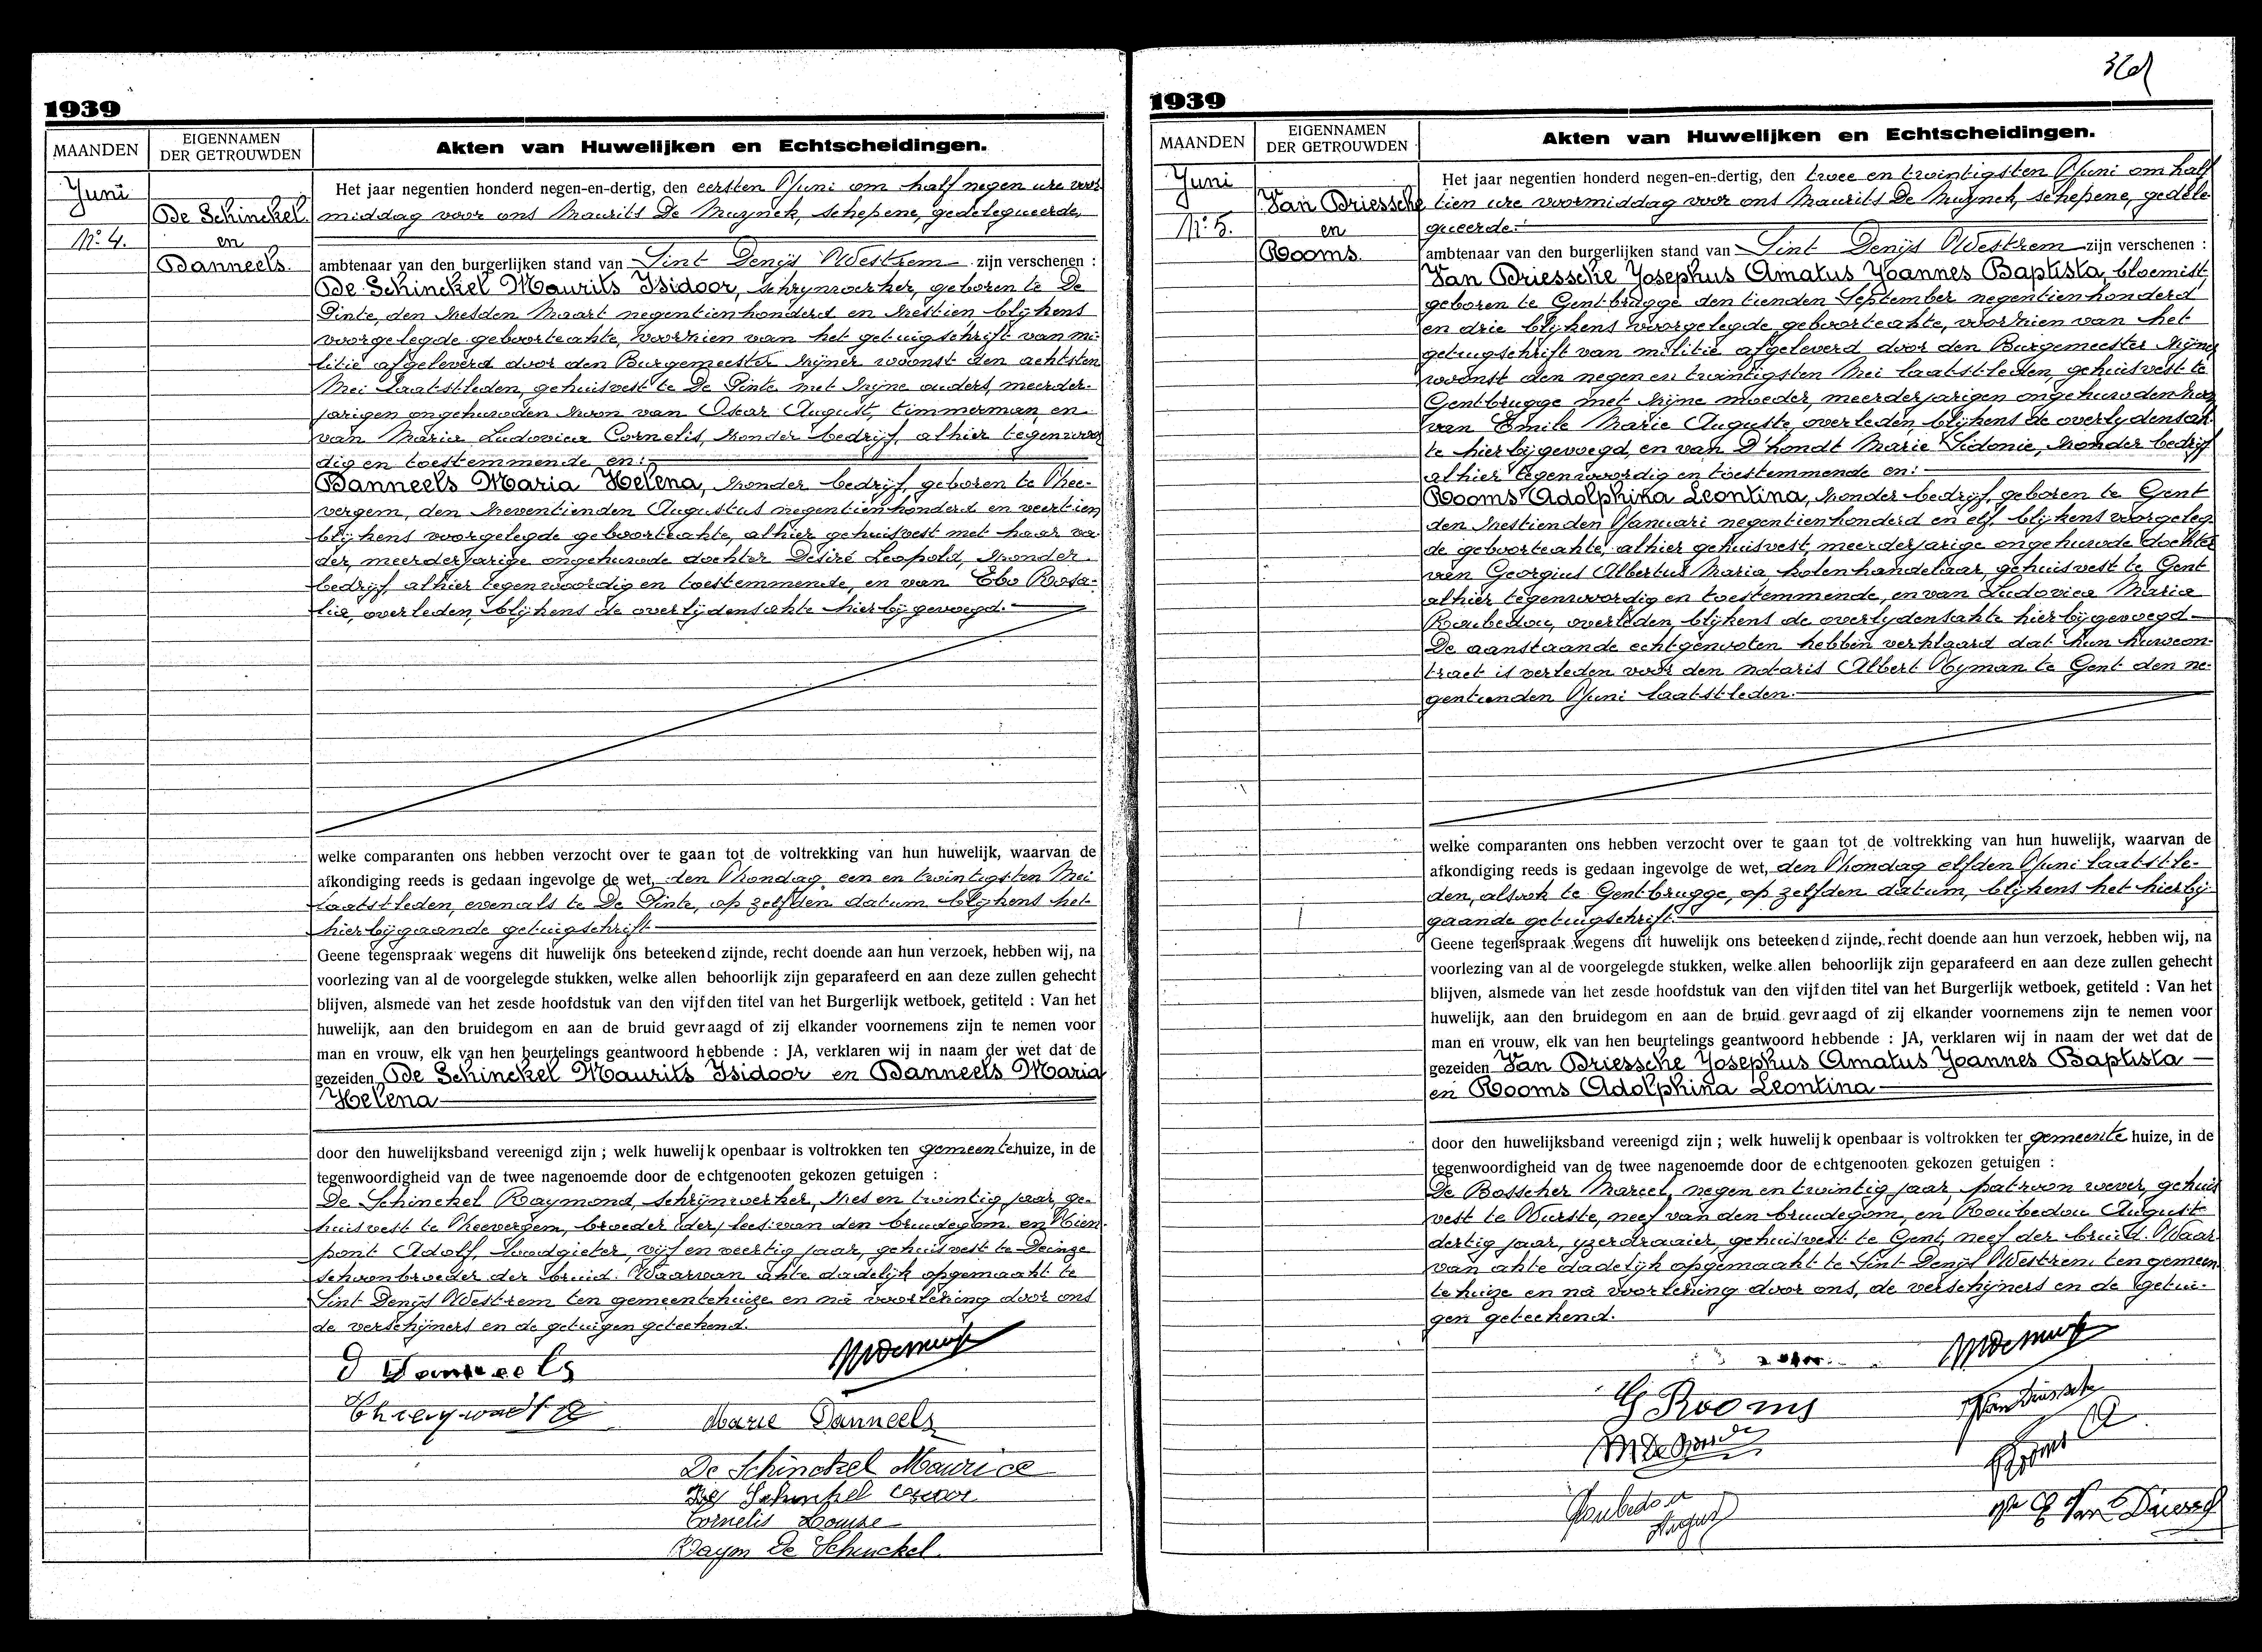 1939
MAANDEN
EIGENNAMEN
DER GETROUWDEN
Akten van Huwelijken en Echtscheidingen.
Juni
Nº 4.
De Schinckel
en
Danneels.
Het jaar negentien honderd negen-en-dertig, den eersten Juni om half negen ure voor-
middag voor ons Maurits De Muynck, schepene, gedelegueerde,
ambtenaar van den burgerlijken stand van Sint Denijs Westrem zijn verschenen :
De Schinckel Maurits Isidoor, schrynwerker, geboren te De
Pinte, den zesden Maart negentienhonderd en zestien blijkens
voorgelegde geboorteakte, voorzien van het getuigschrift van mi-
litie afgeleverd door den Burgemeester zijner woonst den achtsten
Mei laatstleden, gehuisvest te De Pinte met zijne ouders, meerder-
jarigen ongehuwden zoon van Oscar August, timmerman en
van Maria Ludovica Cornelis, zonder bedrijf, alhier tegenwoor
dig en toestemmende en:
Danneels Maria Helena, zonder bedrijf, geboren te Zhee-
vergem, den zeventienden Augustus negentienhonderd en veertien
blijkens voorgelegde geboorteakte, alhier gehuisvest met haar va-
der, meerderjarige ongehuwde dochter Désiré Leopold, zonder
bedrijf, alhier tegenwoordig en toestemmende, en van Ebo Rosa-
lia, overleden, blijkens de overlijdensakte hierbij gevoegd.
welke comparanten ons hebben verzocht over te gaan tot de voltrekking van hun huwelijk, waarvan de
afkondiging reeds is gedaan ingevolge de wet, den Zondag een en twintigsten Mei
laatstleden, evenals te De Pinte, op zelfden datum blijkens het
hierbijgaande getuigschrift
Geene tegenspraak wegens dit huwelijk ons beteekend zijnde, recht doende aan hun verzoek, hebben wij, na
voorlezing van al de voorgelegde stukken, welke allen behoorlijk zijn geparafeerd en aan deze zullen gehecht
blijven, alsmede van het zesde hoofdstuk van den vijfden titel van het Burgerlijk wetboek, getiteld : Van het
huwelijk, aan den bruidegom en aan de bruid gevraagd of zij elkander voornemens zijn te nemen voor
man en vrouw, elk van hen beurtelings geantwoord hebbende : JA, verklaren wij in naam der wet dat de
gezeiden De Schinckel Maurits Isidoor en Danneels Maria
Helena
door den huwelijksband vereenigd zijn ; welk huwelijk openbaar is voltrokken ten gemeentehuize, in de
tegenwoordigheid van de twee nagenoemde door de echtgenooten gekozen getuigen :
De Schinckel Raymond, schrijnwerker, zes en twintig jaar, ge-
huisvest te Zheevergem, broeder (der) lees: van den bruidegom en
pont Adolf, loodgieter, vijf en veertig jaar, gehuisvest te Deinze
schoonbroeder der bruid. Waarvan akte dadelijk opgemaakt te
Sint Denijs Westrem ten gemeentehuize en nà voorlezing door ons
de verschijners en de getuigen geteekend.
D Danneels
Marie Danneels
De Schinckel Maurice
De Schinckel Oscar
Cornelis Louise
Raym De Schinckel
1939
MAANDEN
EIGENNAMEN
DER GETROUWDEN
Akten van Huwelijken en Echtscheidingen.
Juni
Nº 5.
Van Driessche
en
Rooms
Het jaar negentien honderd negen-en-dertig, den twee en twintigsten Juni om half
tien ure voormiddag voor ons Maurits De Muynck, schepene, gedele-
gueerde.
ambtenaar van den burgerlijken stand van Sint Denijs Westrem zijn verschenen :
Van Driessche Josephus Amatus Joannes Baptista, bloemist
geboren te Gentbrugge den tienden September negentienhonderd
en drie blijkens voorgelegde geboorteakte, voorzien van het
getuigschrift van militie afgeleverd door den Burgemeester zijner
woonst den negen en twintigsten Mei laatstleden, gehuisvest te
Gentbrugge met zijne moeder, meerderjarigen ongehuwden zoon
van Emile Marie Auguste, overleden, blijkens de overlydensak-
te hierbijgevoegd, en van D'hondt Marie Sidonie, zonder bedrijf
alhier tegenwoordig en toestemmende en:
Rooms Adolphina Leontina, zonder bedrijf, geboren te Gent
den zestienden Januari negentienhonderd en elf, blijkens voorgeleg-
de geboorteakte, alhier gehuisvest, meerderjarige ongehuwde dochter
van Georgius Albertus Maria, kolenhandelaar, gehuisvest te Gent
alhier tegenwoordig en toestemmende, en van Ludovica Maria
Roubedou, overleden, blijkens de overlydensakte hierbijgevoegd
De aanstaande echtgenooten hebben verklaard dat hun huwcon-
tract is verleden voor den notaris Albert Hyman te Gent den ne-
gentienden Juni laatstleden.
welke comparanten ons hebben verzocht over te gaan tot de voltrekking van hun huwelijk, waarvan de
afkondiging reeds is gedaan ingevolge de wet, den Zondag elfden Juni laatstle-
den, alsook te Gentbrugge, op zelfden datum, blijkens het hierbij-
gaande getuigschrift.
Geene tegenspraak wegens dit huwelijk ons beteekend zijnde, recht doende aan hun verzoek, hebben wij, na
voorlezing van al de voorgelegde stukken, welke allen behoorlijk zijn geparafeerd en aan deze zullen gehecht
blijven, alsmede van het zesde hoofdstuk van den vijfden titel van het Burgerlijk wetboek, getiteld : Van het
huwelijk, aan den bruidegom en aan de bruid gevraagd of zij elkander voornemens zijn te nemen voor
man en vrouw, elk van hen beurtelings geantwoord hebbende : JA, verklaren wij in naam der wet dat de
gezeiden Van Driessche Josephus Amatus Joannes Baptista
en Rooms Adolphina Leontina
door den huwelijksband vereenigd zijn ; welk huwelijk openbaar is voltrokken ter gemeente huize, in de
tegenwoordigheid van de twee nagenoemde door de echtgenooten gekozen getuigen :
De Bosscher Marcel, negen en twintig jaar, patroon wever, gehuis
vest te Wurste, neef van den bruidegom, en Roubedou August
dertig jaar, yzerdraaier, gehuisvest te Gent, neef der bruid. Waar
van akte dadelijk opgemaakt te Sint Denijs Westrem ten gemeen
tehuize en nà voorlezing door ons, de verschijners en de getui-
gen geteekend.
G Rooms
Van Driessche
Roubedou
August